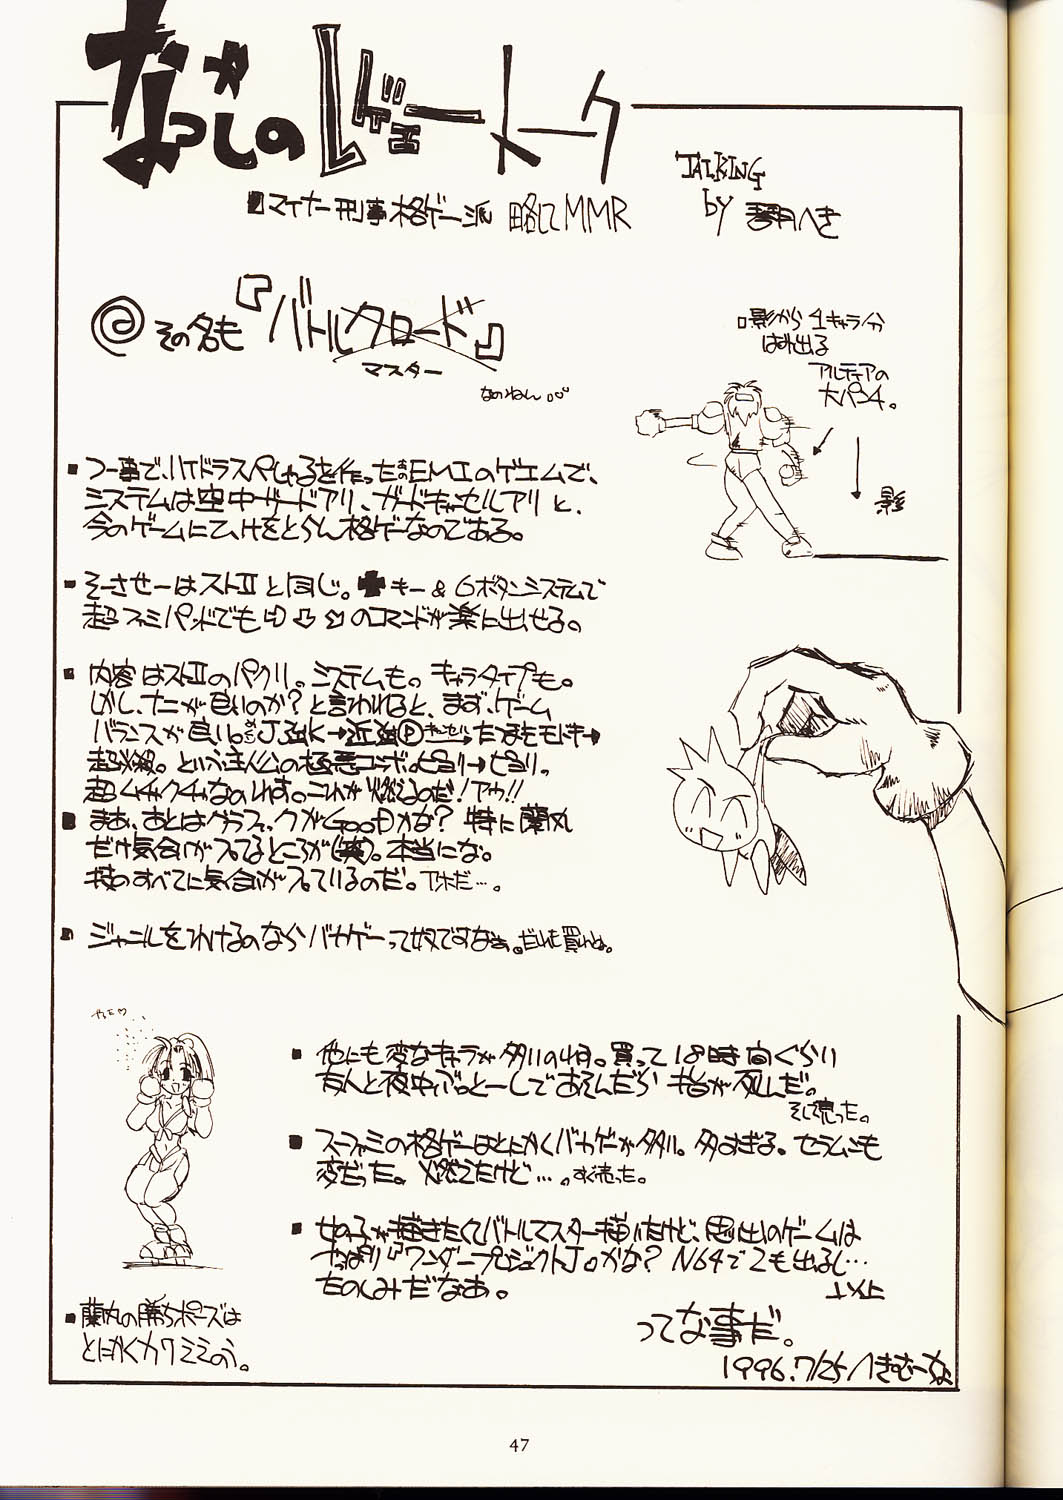 なつかしのゲェートーク
■マイナー刑事格ゲー派 略してMMR
TALKING
by 琴月へき
@その名も『バトルクロード』
マスター
なのねん
□影から1キャラ分
はみ出る
アルティアの
大パンチ。
影
■つー事で、ハイドラスペシャルを作ったあのEMIのゲエムで、
システムは空中ガードアリ、ガードキャンセルアリと、
今のゲームにひけをとらん格ゲーなのである。
■そーさせーはストⅡと同じ。✚キー&6ボタンシステムで
超ファミパッドでも⇨⇩⬂のコマンドが楽に出せる。
■内容はストⅡのパクリ。システムも。キャラタイプも。
しかし、ナニが良いのか?と言われると、まず、ゲーム
バランスが良い。めだつJ強K→近強Ⓟキャンセル→たつまきモドキ→
超必殺。という主人公の極悪コンボ。ピヨリ→ピヨリ。
超ムチャクチャなのれす。これが燃えるのだ!アウ!!
■まあ、あとはグラフィックがGooDかな?特に蘭丸
だけ気合いが入ってるところが(笑)。本当にな。
技のすべてに気合が入っているのだ。アホだ…。
■ジャンルをわけるのならバカゲーって奴ですなぁ。だれも買わん。
やった♡
■他にも変なキャラが多いの也。買って18時間ぐらい
友人と夜中ぶっとーしであそんだら指が死んだ。
そして売った。
■スーファミの格ゲーはとにかくバカゲーが多い。多すぎる。セラムンも
変だった。燃えたけど…。すぐ売った。
■女の子が描きたくてバトルマスター描いたけど、思い出のゲームは
やっぱり『ワンダープロジェクトJ』かな?N64で2も出るし…
たのしみだなあ。
以上
ってな事だ。
1996.7/25/へきむーな
■蘭丸の勝ちポーズは
とにかくカワミミのう。
47